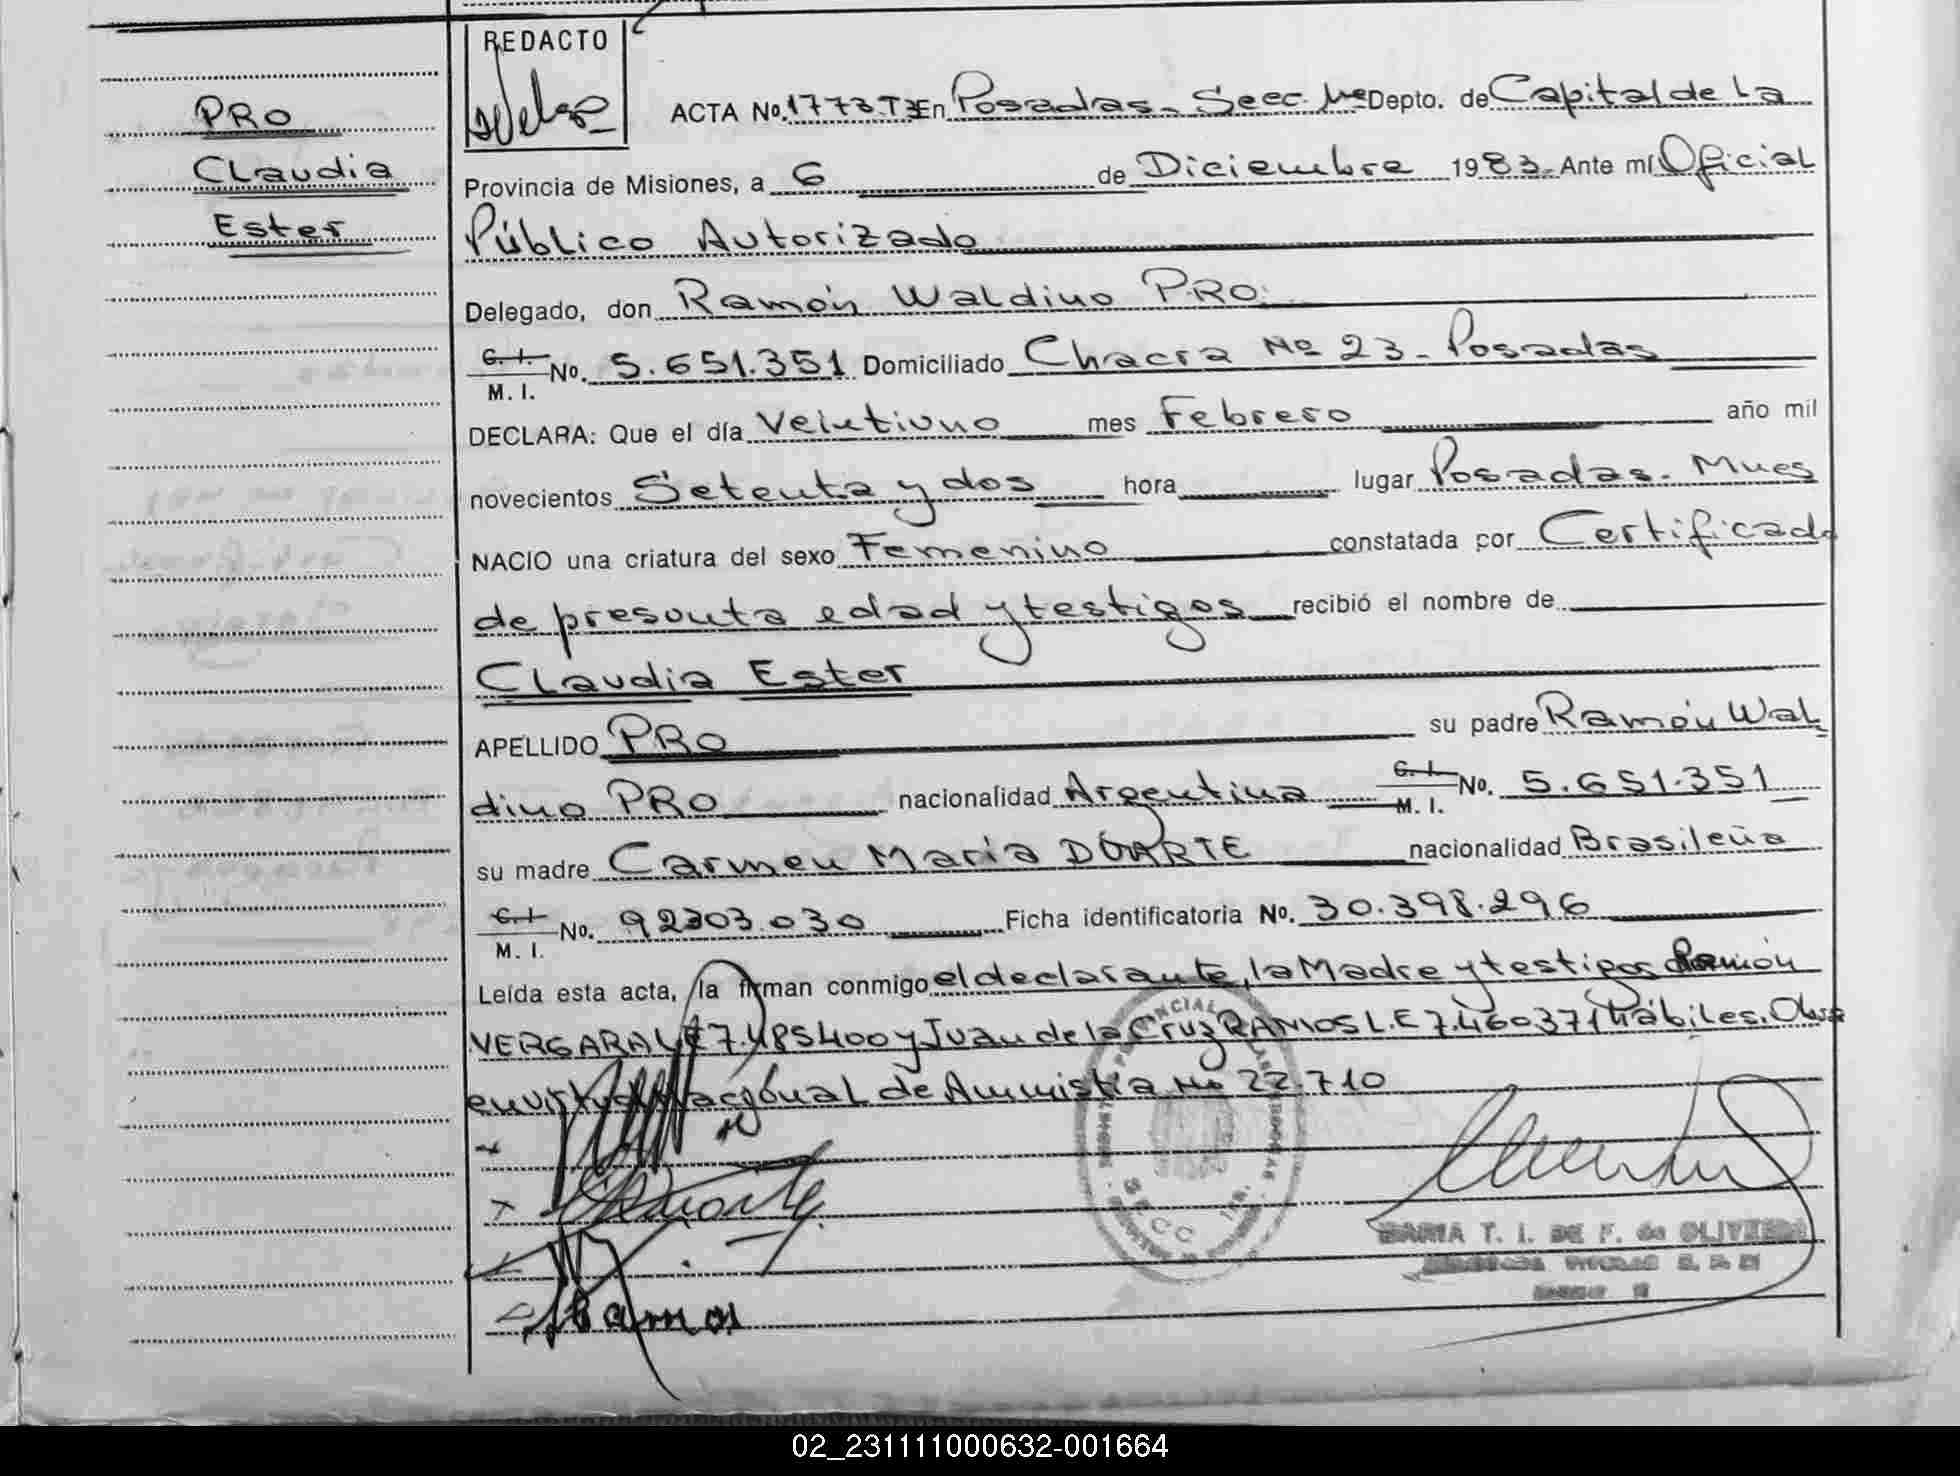 REDACTO
PRO
Claudia
Ester
ACTA No. 1773.T3 En Posadas. Secc. 1ra Depto. de Capital de La
Provincia de Misiones, a 6 de Diciembre 1983. Ante mí Oficial
Público Autorizado
Delegado, don Ramón Waldino PRO.
C. I. M. I. No. 5.651.351 Domiciliado Chacra Nº 23 - Posadas
DECLARA: Que el día Veintiuno mes Febrero año mil
novecientos Setenta y dos hora lugar Posadas. Mnes
NACIO una criatura del sexo Femenino constatada por Certificado
de presunta edad y testigos recibió el nombre de
Claudia Ester
APELLIDO PRO su padre Ramón Wal
dino PRO nacionalidad Argentina C. I. M. I. No. 5.651.351
su madre Carmen María DUARTE nacionalidad Brasileña
C. I. M. I. No. 92303.030 Ficha identificatoria No. 30.398.296
Leída esta acta, la firman conmigo el declarante, la Madre y testigos Ramón
VERGARA L.E 7.485400 y Juan de la Cruz RAMOS L.E 7.460371 hábiles.
en virtud Nacional de Amnistía Nº 22.710
Duarte
Ramos
MARIA T. I. DE F. de OLIVEIRA
02_231111000632-001664